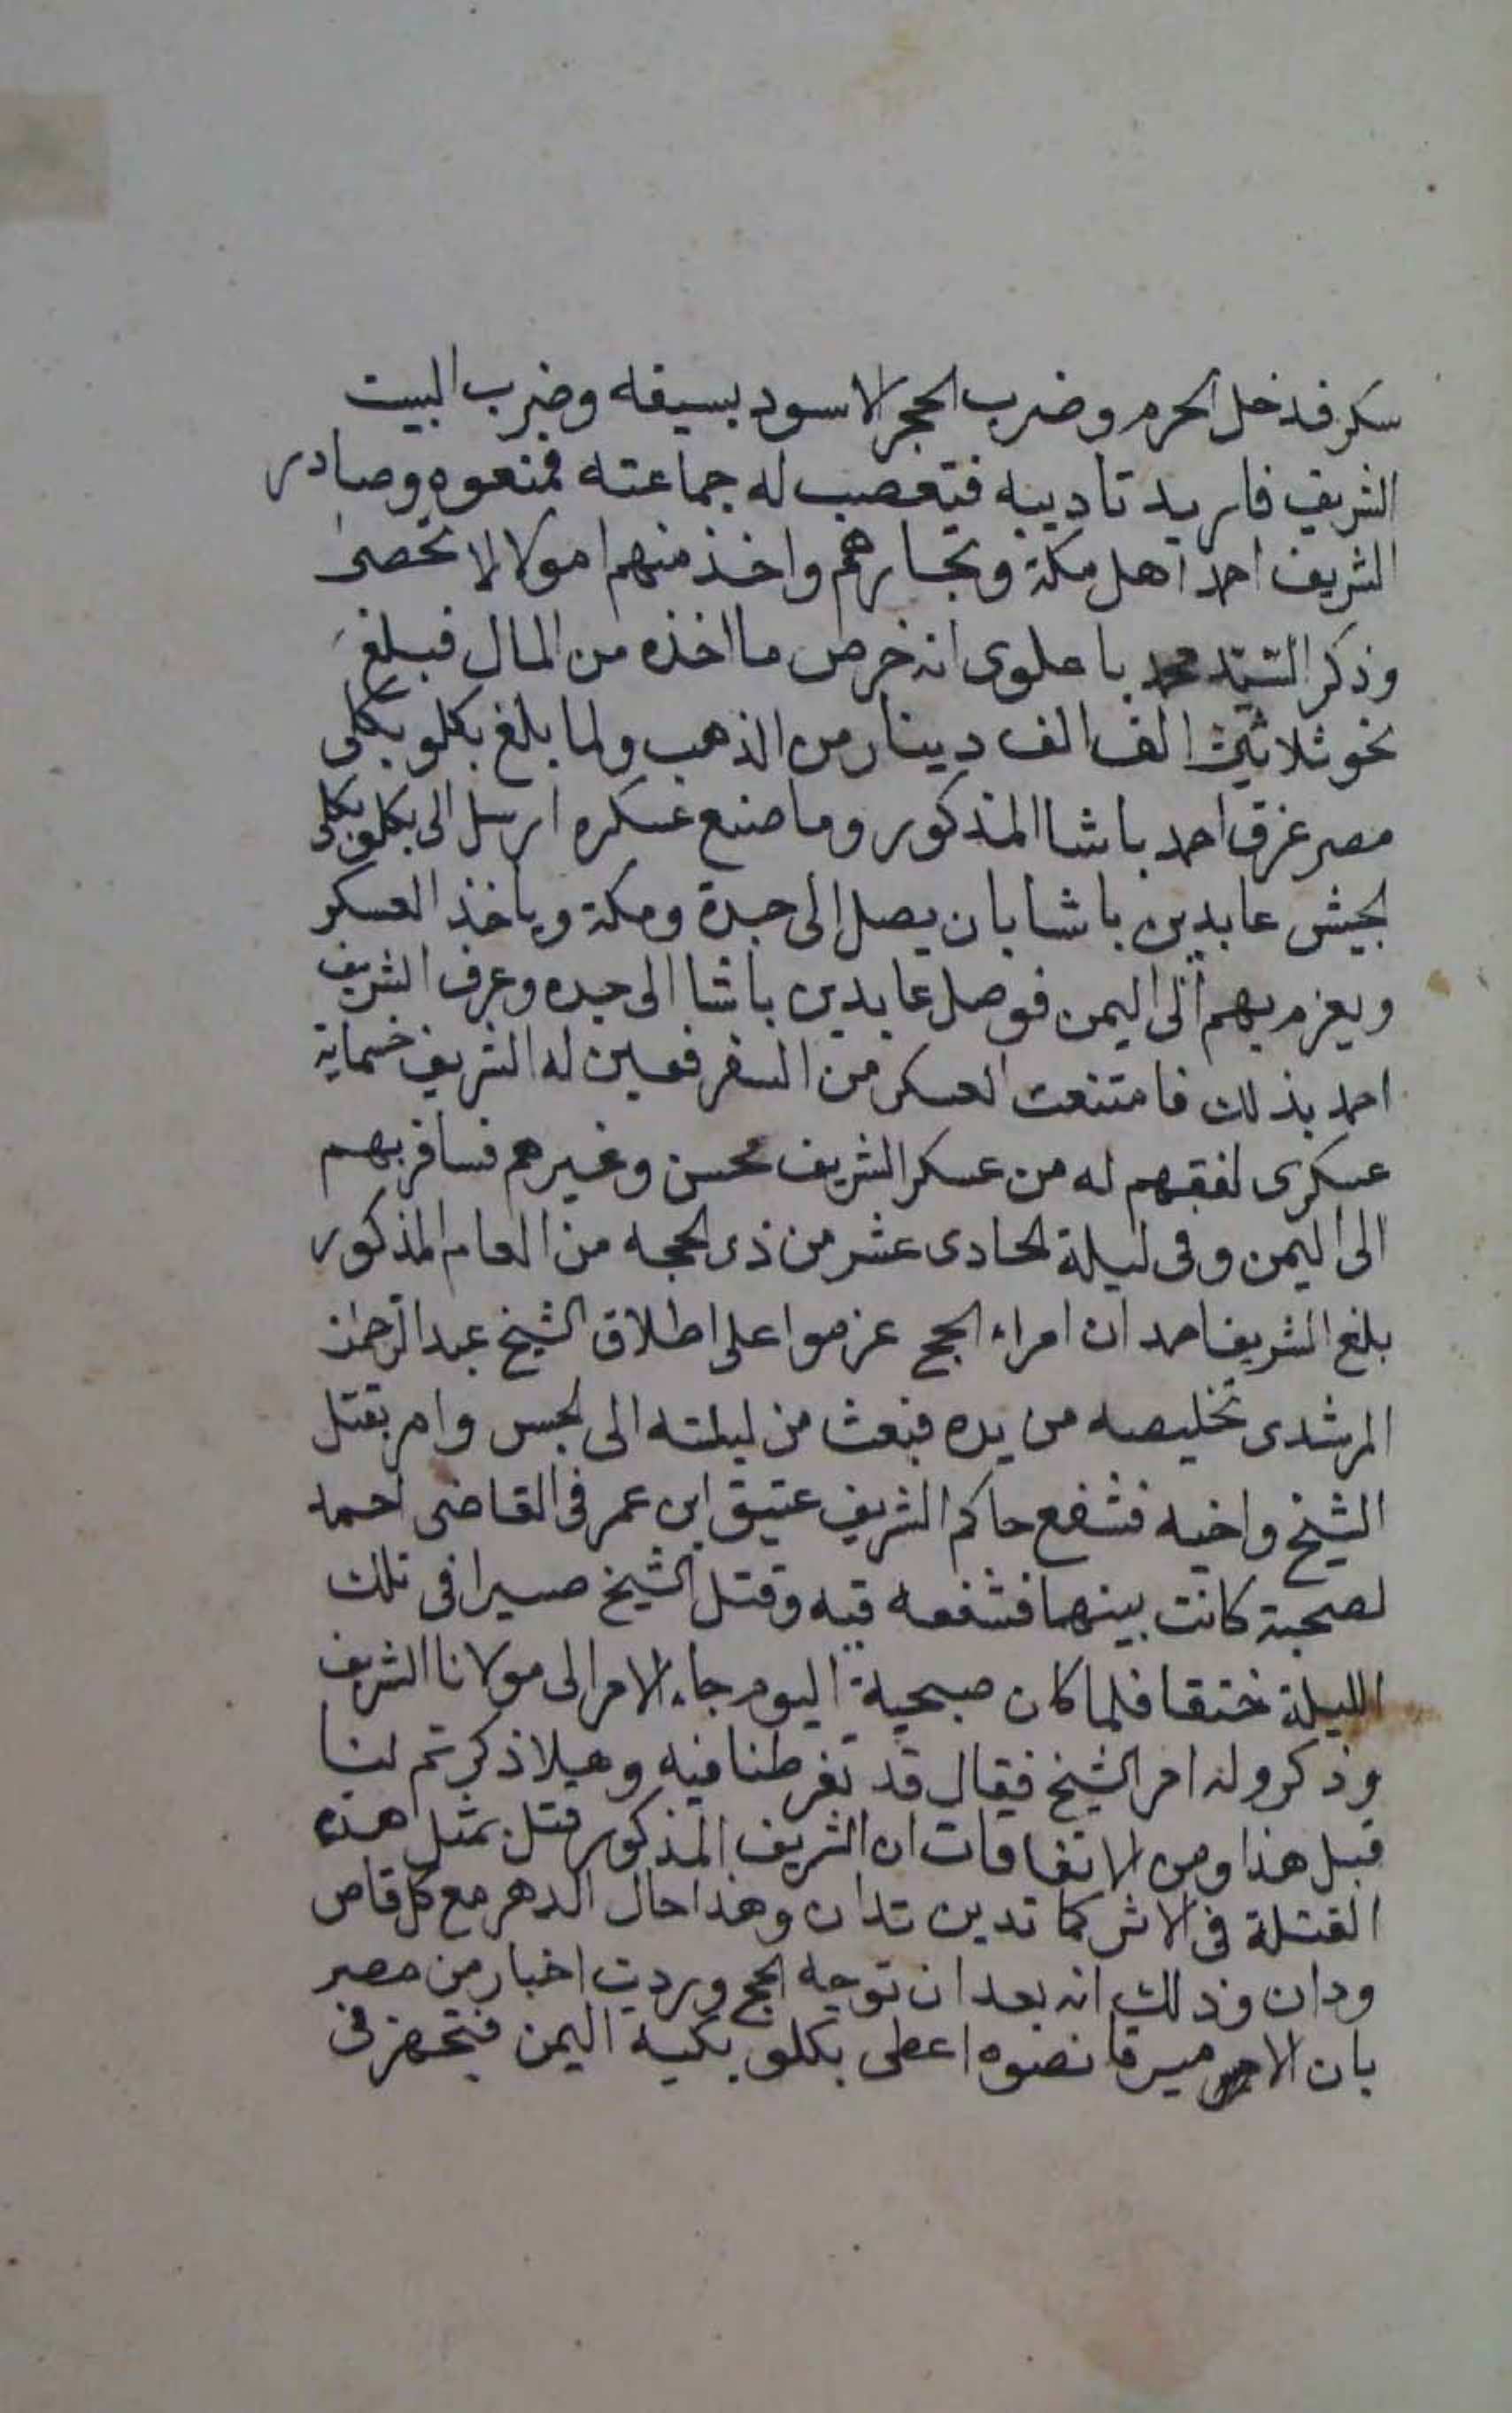 سكر فدخل الحرم وضرب الحجر الاسود بسيفه وضرب البيت
الشريف فاريد تاديبه فتعصب له جماعته فمنعوه وصادر
الشريف احمد اهل مكة وتجارهم واخذ منهم امولا لا تحصى
وذكر السيد محمد با علوى انه خرص ما اخذه من المال فبلغ
نحو ثلاثين الف الف دينار من الذهب ولما بلغ بكلو بكلى
مصر غرق احمد باشا المذكور وما صنع عسكره ارسل الى بكلو بكلى
لجيش عابدين باشا بان يصل الى جدة ومكة وياخذ العسكر
ويعزم بهم الى اليمن فوصل عابدين باشا الى جده وعرف الشريف
احمد بذلك فامتنعت العسكر من السفر فعين له الشريف خسماية
عسكرى لفقهم له من عسكر الشريف محسن وغيرهم فسافر بهم
الى اليمن وفى ليلة الحادى عشر من ذى الحجه من العام المذكور
بلغ الشريف احمد ان امراء الحج عزموا على اطلاق الشيخ عبد الرحمن
المرشدى تخليصه من يده فبعث من ليلته الى الحبس وامر بقتل
الشيخ واخيه فشفع حاكم الشريف عتيق ابن عمر فى القاضى احمد
لصحبة كانت بينهما فشفعه فيه وقتل الشيخ صبرا فى تلك
الليلة خنقا فلما كان صبحية اليوم جاء الامر الى مولانا الشريف
وذكروا له امر الشيخ فقال قد تفرطنا فيه وهلا ذكرتم لنا
قبل هذا ومن الاتفاقات ان الشريف المذكور قتل بمثل هذه
القتلة فى الاثر كما تدين تدان وهذا حال الدهر مع كل قاص
ودان وذلك انه بعد ان توجه الحج وردت اخبار من مصر
بان الامير قانصوه اعطى بكلو بكية اليمن فتجهز فى